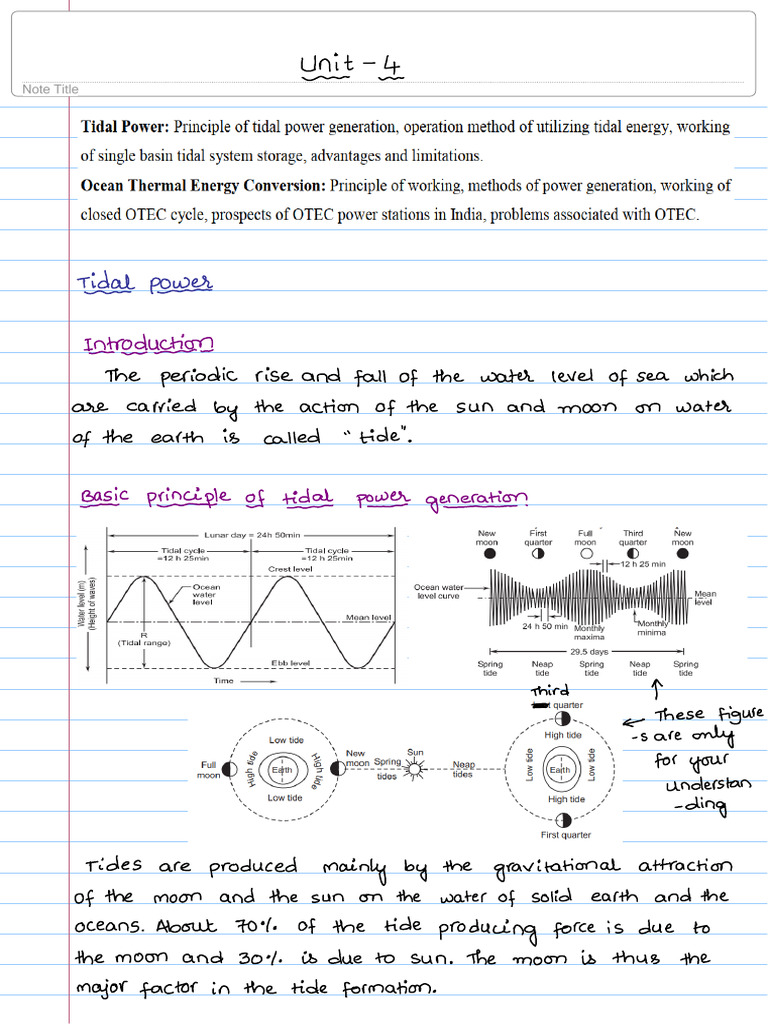 Unit - 4
Note Title
Tidal Power: Principle of tidal power generation, operation method of utilizing tidal energy, working
of single basin tidal system storage, advantages and limitations.
Ocean Thermal Energy Conversion: Principle of working, methods of power generation, working of
closed OTEC cycle, prospects of OTEC power stations in India, problems associated with OTEC.
Tidal power
Introduction
The periodic rise and fall of the water level of sea which
are carried by the action of the sun and moon on water
of the earth is called "tide".
Basic principle of tidal power generation
Lunar day = 24h 50min
Tidal cycle
=12 h 25min
Tidal cycle
=12 h 25min
Crest level
Ocean
water
level
Mean level
R
(Tidal range)
Ebb level
Time
Water level (m)
(Height of waves)
New
moon
First
quarter
Full
moon
Third
quarter
New
moon
12 h 25 min
Ocean water
level curve
Mean
level
24 h 50 min
Monthly
maxima
Monthly
minima
29.5 days
Spring
tide
Neap
tide
Spring
tide
Neap
tide
Spring
tide
These figure
-s are only
for your
understan
-ding
Full
moon
Low tide
High tide
Earth
High tide
Low tide
New
moon
Spring
tides
Sun
Neap
tides
Third
quarter
High tide
Low tide
Earth
Low tide
High tide
First quarter
Tides are produced mainly by the gravitational attraction
of the moon and the sun on the water of solid earth and the
oceans. About 70% of the tide producing force is due to
the moon and 30% is due to sun. The moon is thus the
major factor in the tide formation.